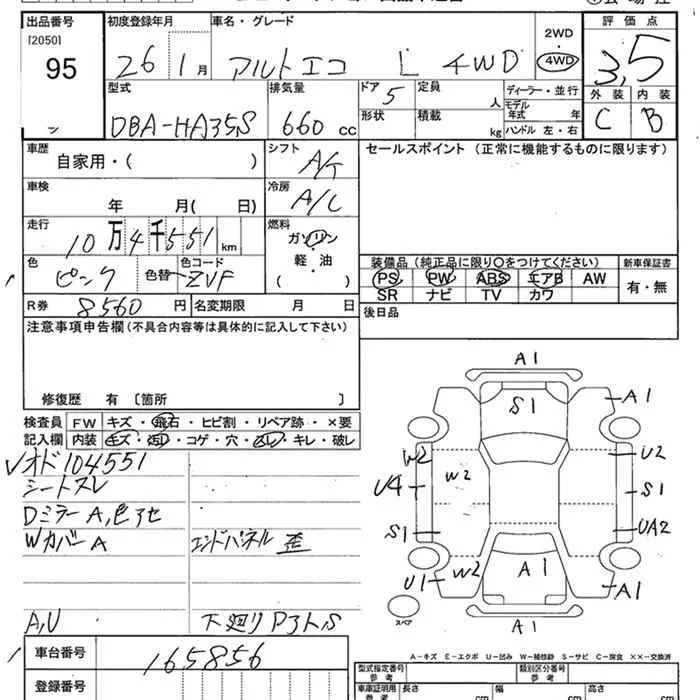 出品番号 初度登録年月 車名・グレード 2WD 評価点
[2050]
95 26 1月 アルトエコ L 4WD 4WD 3.5
型式 排気量 ドア 定員 ディーラー・並行 外装 内装
DBA-HA35S 660cc 5 人 モデル年式 年 C B
形状 積載 kg ハンドル 左・右
車歴 シフト セールスポイント (正常に機能するものに限ります)
自家用・( ) A/T
車検 冷房
年 月( 日) A/C
走行 燃料
10万4千551km ガソリン
軽・油
( )
色 色替 色コード 装備品 (純正品に限り○をつけてください) 新車保証書
ピンク ZVF PS PW ABS エアB AW 有・無
SR ナビ TV カワ
R券 8560円 名変期限 月 日 後日品
注意事項申告欄 (不具合内容等は具体的に記入して下さい)
修復歴 有 〔箇所 〕
検査員 FW キズ・飛石・ヒビ割・リペア跡・×要
記入欄 内装 キズ・汚レ・コゲ・穴・スレ・キレ・破レ
オド104551
シートスレ
Dミラー A,色アセ
Wカバー A エンドパネル 歪
A,U 下廻り Pアト,S
A1
S1 A1
W2 W2 U2
U4 S1
S1 UA2
U1 W2 A1 A1
スペア A1
A-キズ E-エクボ U-凹み W-補修跡 S-サビ C-腐食 ××-交換済
車台番号 165856
登録番号
型式指定番号 参考 類別区分番号 参考
車庫証明用 参考 長さ cm 幅 cm 高さ cm